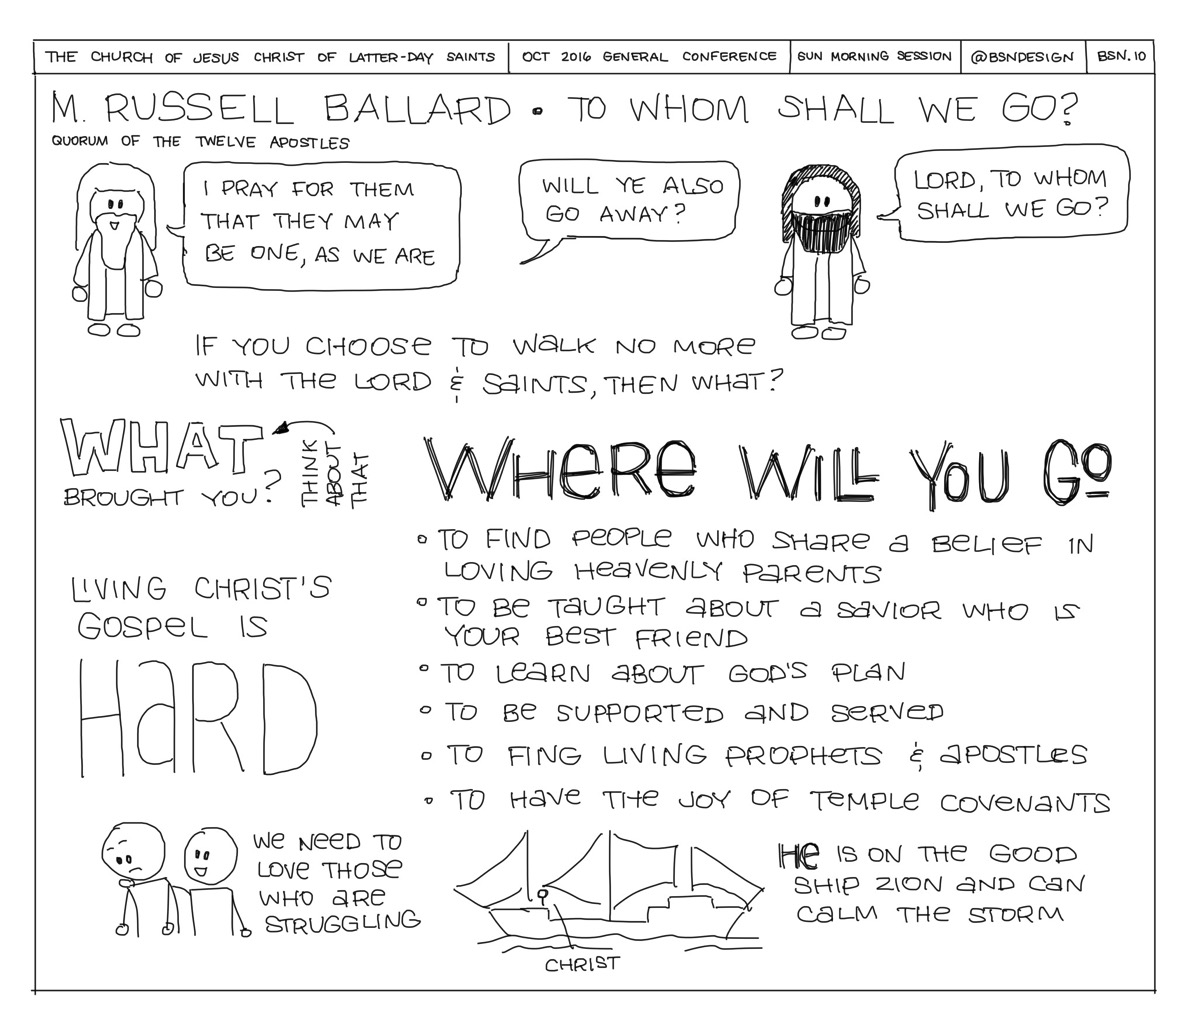 THE CHURCH OF JESUS CHRIST OF LATTER-DAY SAINTS
OCT 2016 GENERAL CONFERENCE
SUN MORNING SESSION
@BSNDESIGN
BSN.10
M. RUSSELL BALLARD • TO WHOM SHALL WE GO?
QUORUM OF THE TWELVE APOSTLES
I PRAY FOR THEM
THAT THEY MAY
BE ONE, AS WE ARE
WILL YE ALSO
GO AWAY?
LORD, TO WHOM
SHALL WE GO?
IF YOU CHOOSE TO WALK NO MORE
WITH THE LORD & SAINTS, THEN WHAT?
WHAT
BROUGHT YOU?
THINK
ABOUT
THAT
LIVING CHRIST'S
GOSPEL IS
HARD
WHERE WILL YOU GO
• TO FIND PEOPLE WHO SHARE A BELIEF IN
LOVING HEAVENLY PARENTS
• TO BE TAUGHT ABOUT A SAVIOR WHO IS
YOUR BEST FRIEND
• TO LEARN ABOUT GOD'S PLAN
• TO BE SUPPORTED AND SERVED
• TO FING LIVING PROPHETS & APOSTLES
• TO HAVE THE JOY OF TEMPLE COVENANTS
WE NEED TO
LOVE THOSE
WHO ARE
STRUGGLING
CHRIST
HE IS ON THE GOOD
SHIP ZION AND CAN
CALM THE STORM